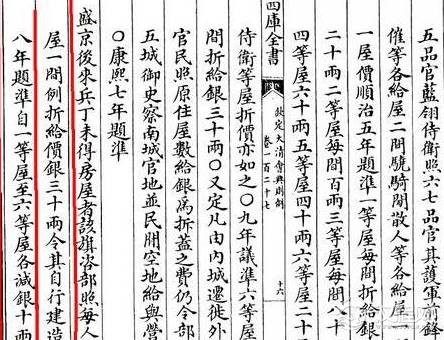 五品官藍翎侍衛六七品官其護軍鋒
催等各給屋二間驍騎閒散人等各給屋一
一屋價順治五年題準一等屋每間折給銀一
二十兩二等屋每間百兩三等屋每間八十
四等屋六十兩五等屋四十兩六等屋二十
四庫全書
欽定大清會典則例
卷一百二十七
十六
侍衛等屋折價亦如之〇九年議準六等屋
間折給銀三十兩〇又定凡由內城遷徙外
官民照原住屋數給銀爲拆蓋之費仍令部
五城御史察南城官地並民間空地給與營
〇康熙七年題準
盛京後來兵丁未得房屋者該旗咨部照每人
屋一間例折給價銀三十兩令其自行建造
八年題準自一等屋至六等屋各減銀十兩